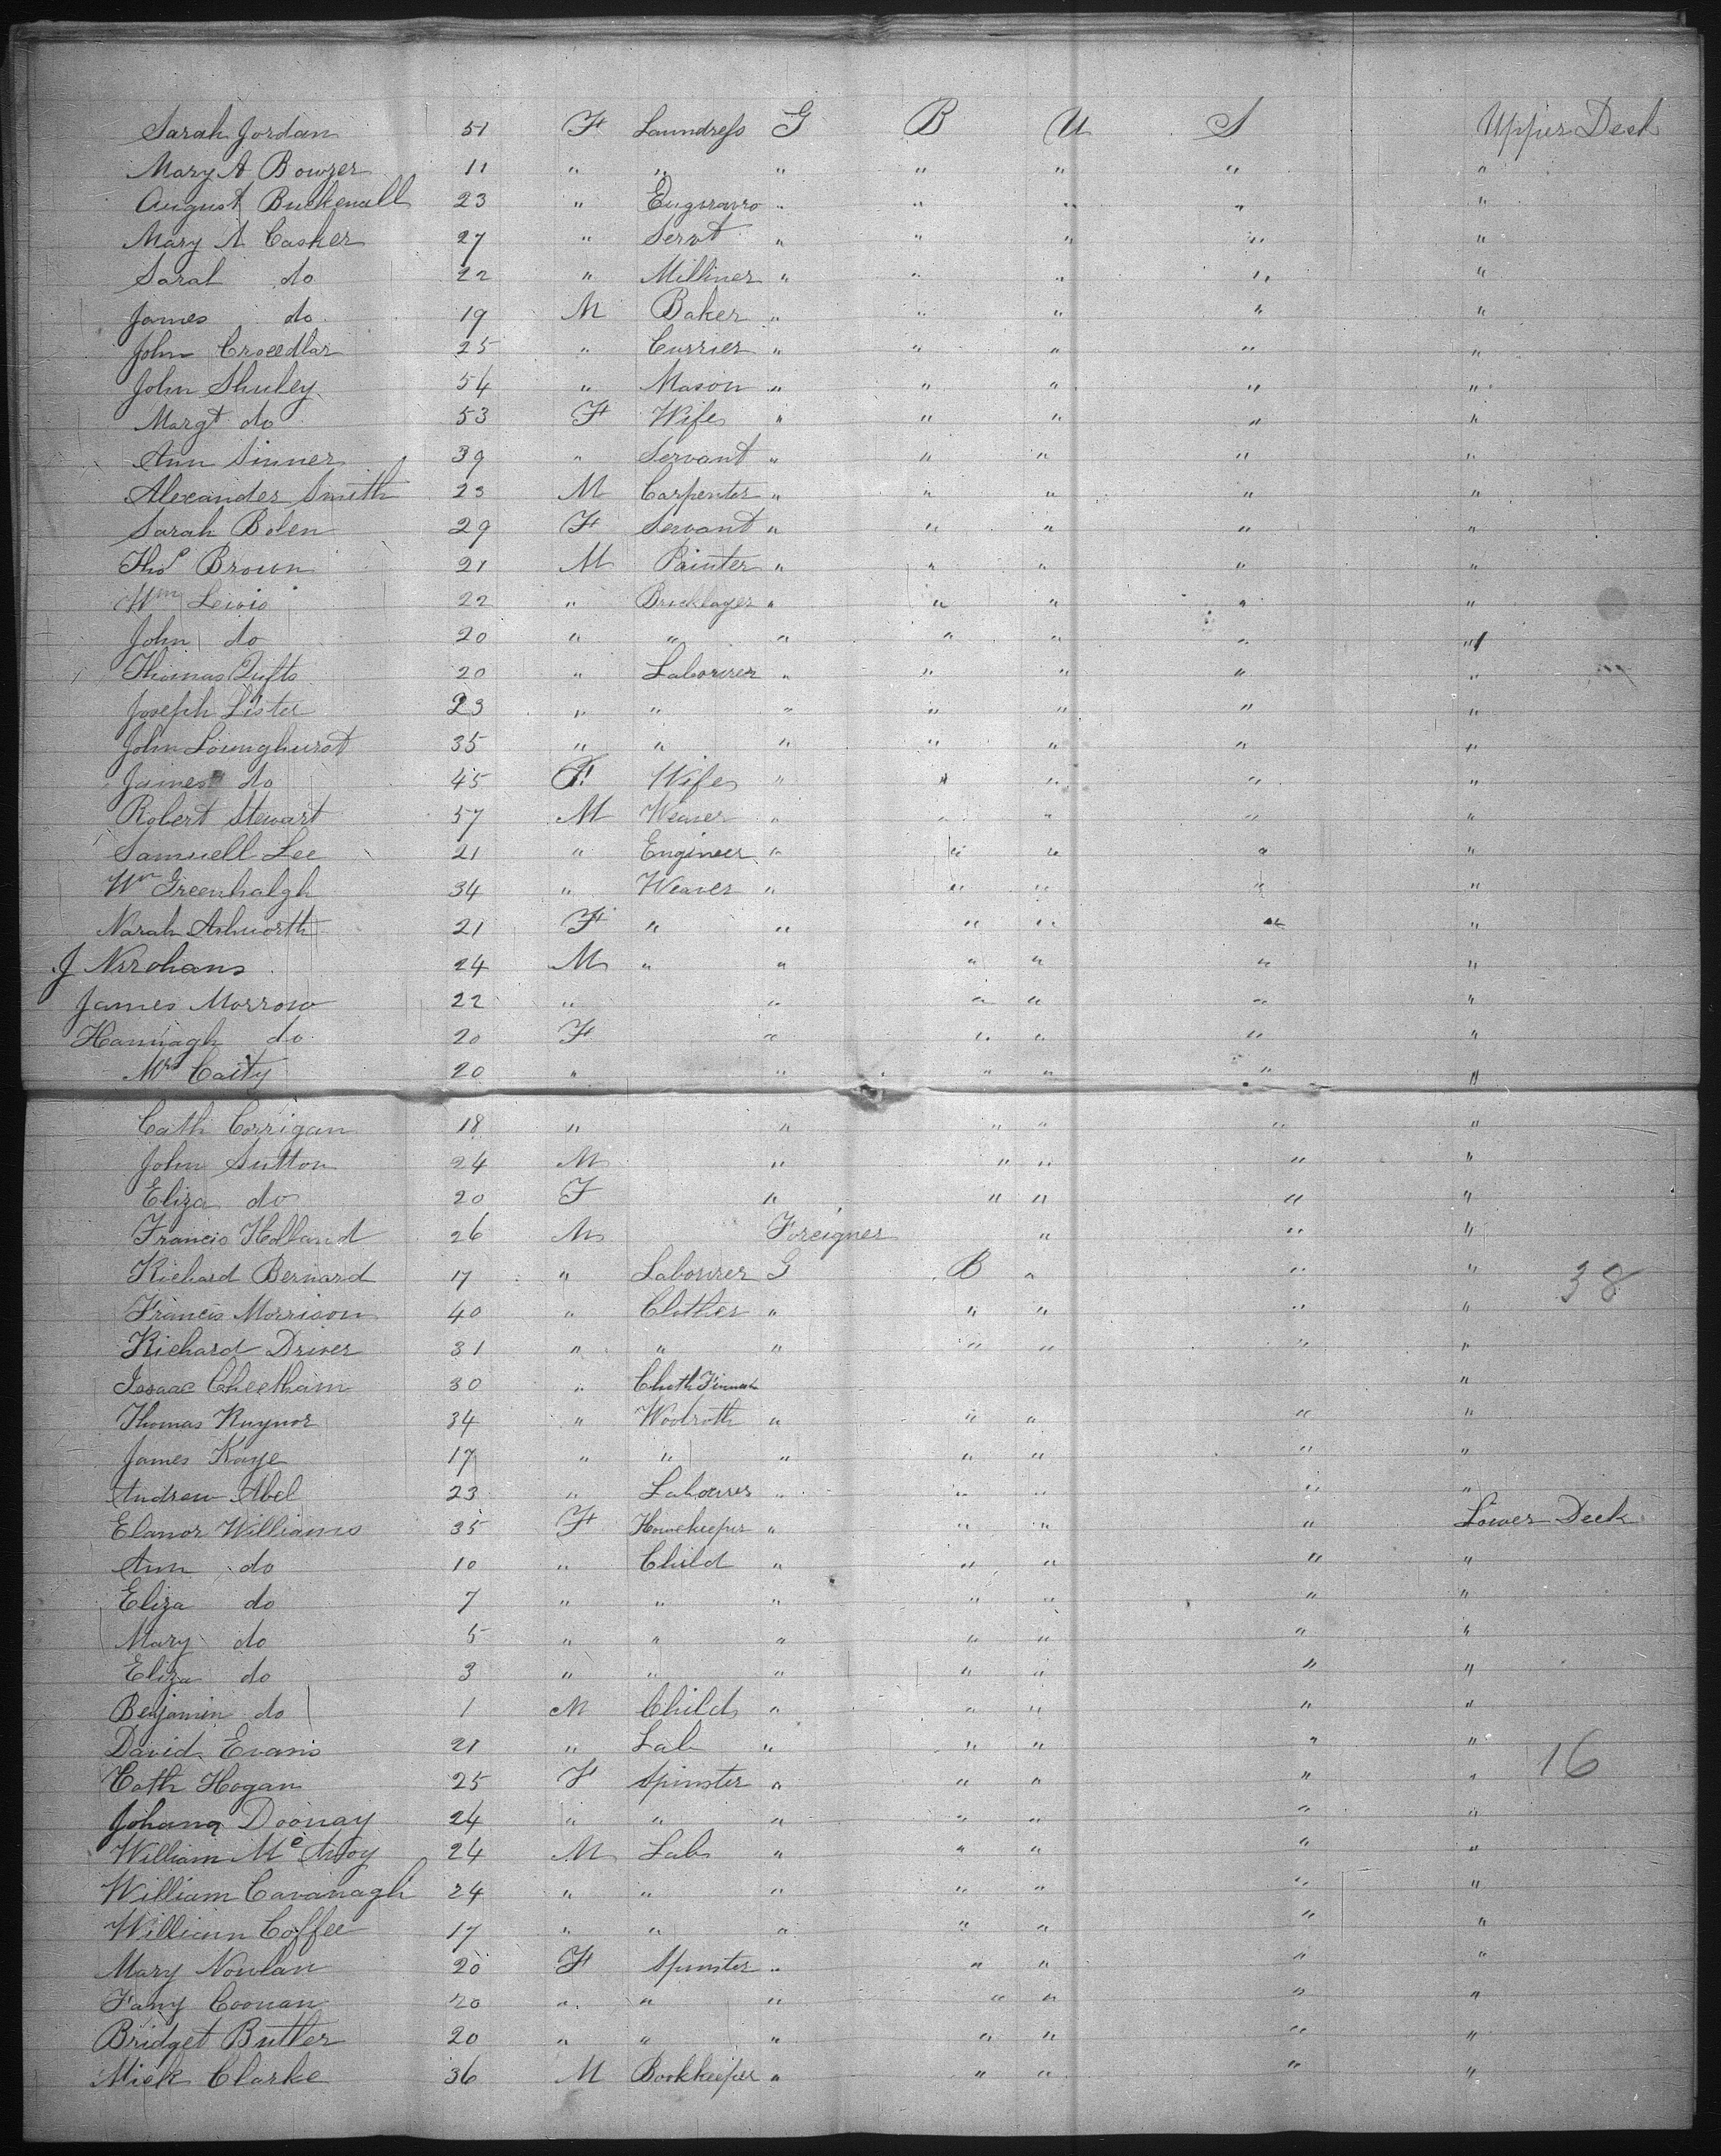 Sarah Jordan 51 F Laundress G B U S Upper Deck
Mary A Bowzer 11 " " " " " " "
August Buckenall 23 " " " " " "
Mary A Casker 27 " Servt " " " " "
Sarah do 22 " Milliner " " " " "
James do 19 M Baker " " " " "
John 25 " Currier " " " " "
John Shuley 54 " Mason " " " " "
Margt do 53 F Wife " " " " "
Ann Sinner 39 " Servant " " " " "
Alexander Smith 23 M Carpenter " " " " "
Sarah Bolen 29 F Servant " " " " "
Thos Brown 21 M Painter " " " " "
Wm Lewis 22 " Bricklayer " " " " "
John do 20 " " " " " " "
Thomas Tufts 20 " Labourer " " " " "
Joseph Lister 23 " " " " " " "
John 35 " " " " " " "
James do 45 F Wife " " " " "
Robert Stewart 57 M Weaver " " " " "
Samuell Lee 21 " Engineer " " " " "
Wm Greenhalgh 34 " Weaver " " " " "
Narah Ashworth 21 F " " " " " "
J 24 M " " " " " "
James Morrow 22 " " " " " "
Hannagh do 20 F " " " " "
Mrs Caity 20 " " " " " "
Cath Corrigan 18 " " " " " "
John Sutton 24 M " " " " "
Eliza do 20 F " " " " "
Francis Holland 26 M Foreigner " " "
Richard Bernard 17 " Labourer G B " " " 38
Francis Morrison 40 " Clother " " " " "
Richard Driver 31 " " " " " " "
Isaac Cheetham 30 " Cloth "
Thomas Raynor 34 " " " " " "
James Kaye 17 " " " " " " "
Andrew Abel 23 " Labourer " " " " "
Elanor Williams 35 F Housekeeper " " " " Lower Deck
Ann do 10 " Child " " " " "
Eliza do 7 " " " " " " "
Mary do 5 " " " " " " "
Eliza do 3 " " " " " " "
Benjamin do 1 M Child " " " " "
David Evans 21 " Lab " " " " " 16
Cath Hogan 25 F Spinster " " " " "
Johana Doonay 24 " " " " " " "
William McAvoy 24 M Lab " " " " "
William Cavanagh 24 " " " " " " "
William Coffee 17 " " " " " " "
Mary Nowlan 20 F Spinster " " " " "
Fany Coonan 20 " " " " " " "
Bridget Butler 20 " " " " " " "
Mick Clarke 36 M Bookkeeper " " " " "